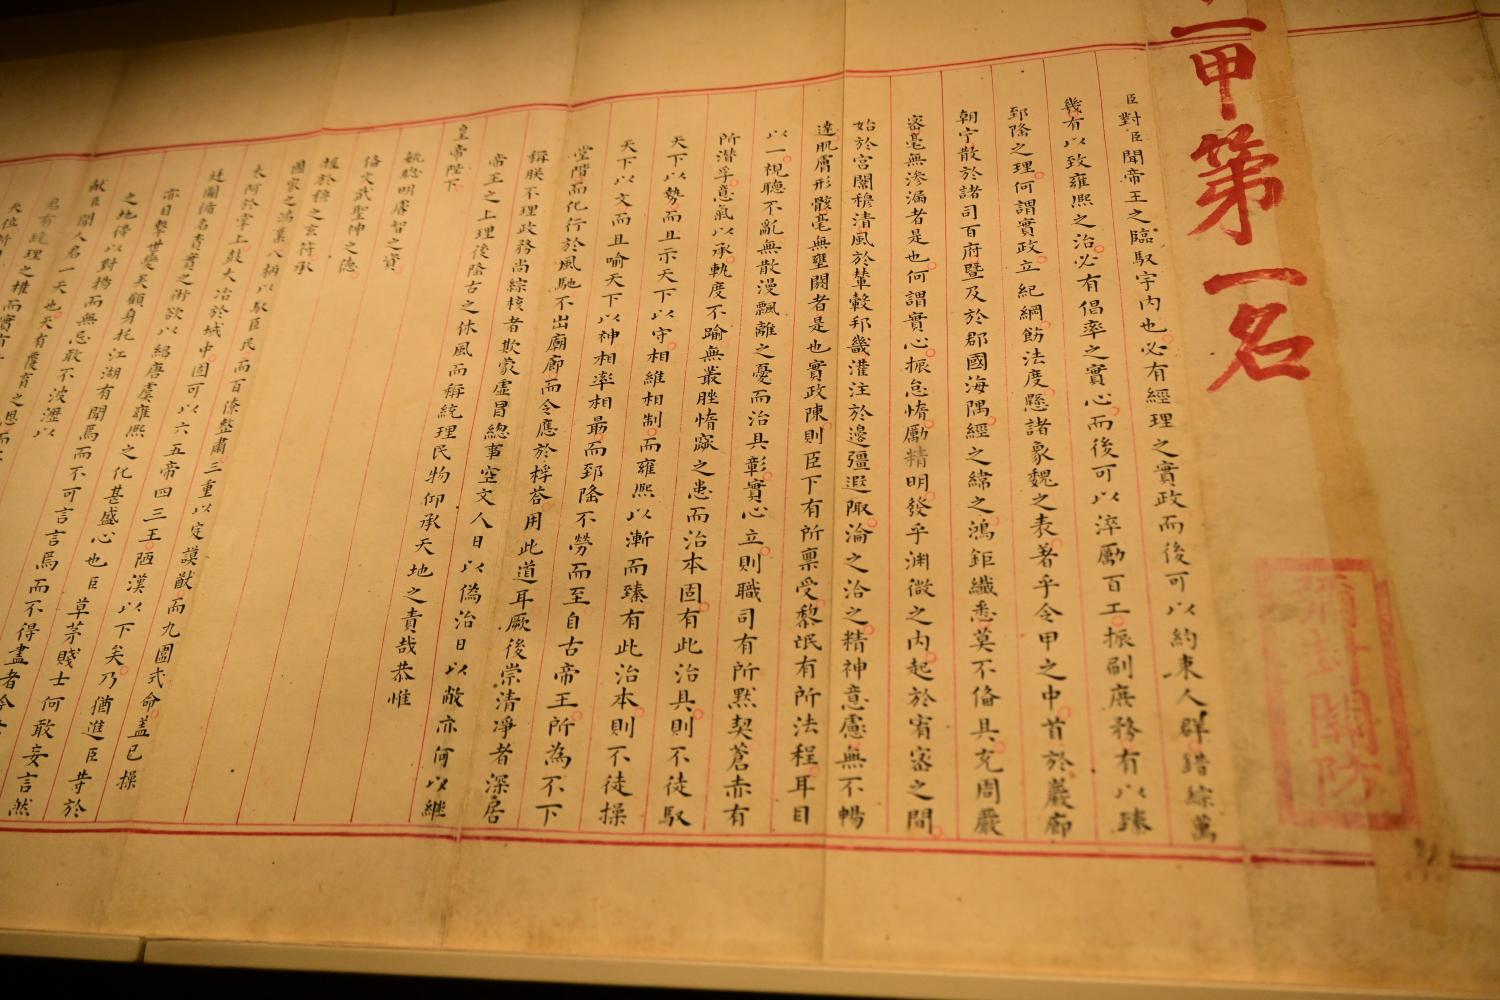 一甲第一名
彌封關防
臣對臣聞帝王之臨馭宇內也必有經理之實政而後可以約束人群錯綜萬
幾有以致雍熙之治必有倡率之實心而後可以淬勵百工振刷庶務有以臻
郅隆之理何謂實政立紀綱飭法度懸諸象魏之表著乎令甲之中首於巖廊
朝宁散於諸司百府暨及於郡國海隅經之緯之鴻鉅纖悉莫不備具充周嚴
密毫無滲漏者是也何謂實心振怠惰勵精明發乎淵微之內起於宥密之間
始於宮闈穆清風於輦轂邦畿灌注於邊疆遐陬淪之洽之精神意慮無不暢
達肌膚形骸毫無壅閼者是也實政陳則臣下有所稟受黎氓有所法程耳目
以一視聽不亂無散漫飄離之憂而治具彰實心立則職司有所默契蒼赤有
所潛孚意氣以承軌度不踰無叢脞惰窳之患而治本固有此治具則不徒馭
天下以勢而且示天下以守相維相制而雍熙以漸而臻有此治本則不徒操
天下以文而且喻天下以神相率相最而郅隆不勞而至自古帝王所為不下
堂階而化行於風馳不出廟廊而令應於桴荅用此道耳厥後崇清凈者深居
稱朕不理政務尚綜核者欺蒙虛冒總事空文人日以偽治日以敝亦何以繼
帝王之上理後隆古之休風而稱統理民物仰承天地之責哉恭惟
皇帝陛下
毓聰明睿智之資
備文武聖神之德
握於穆之玄符承
國家之鴻業八柄以馭臣民而百僚整肅三重以定謨猷而九圍式命蓋已操
太阿於掌上鼓大冶於域中固可以六五帝四三王陋漢以下矣乃猶進臣等於
廷圖循名責實之術欲以紹唐虞雍熙之化甚盛心也臣草茅賤士何敢妄言然
亦目擊世變矣顧身托江湖有聞焉而不可言言焉而不得盡者今
之地得以對揚而無忌敢不披瀝以
獻臣聞人君一天也天有覆育之恩而
君有統理之權而實有
天位